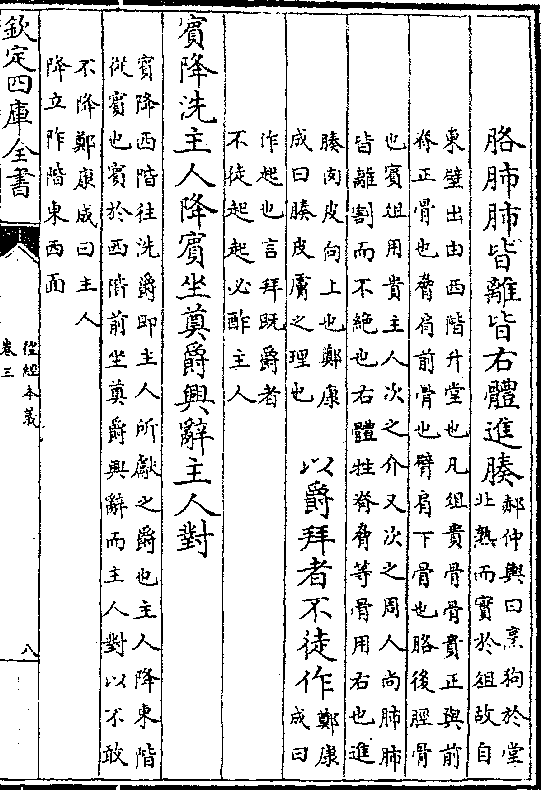 胳肺肺皆離皆右體進腠
郝仲輿曰烹狗於堂
北熟而實於俎故自
東壁出由西階升堂也凡俎貴骨骨貴正與前
脊正骨也脅肩前骨也臂肩下骨也胳後脛骨
也賓俎用貴主人次之介又次之周人尚肺肺
皆離割而不絶也右體牲脊脅等骨用右也進
腠肉皮向上也鄭康
成曰腠皮膚之理也
以爵拜者不徒作
鄭康
成曰
作起也言拜既爵者
不徒起起必酢主人
賓降洗主人降賓坐奠爵興辭主人對
賓降西階往洗爵即主人所獻之爵也主人降東階
從賓也賓於西階前坐奠爵興辭而主人對以不敢
不降鄭康成曰主人
降立阼階東西面
欽定四庫全書
禮經本義
卷三
八